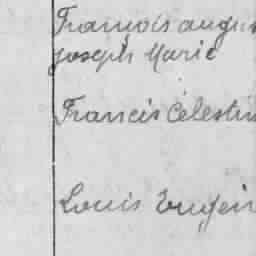 François augus
Joseph Marie
Francis Célestin
Louis Eugèn